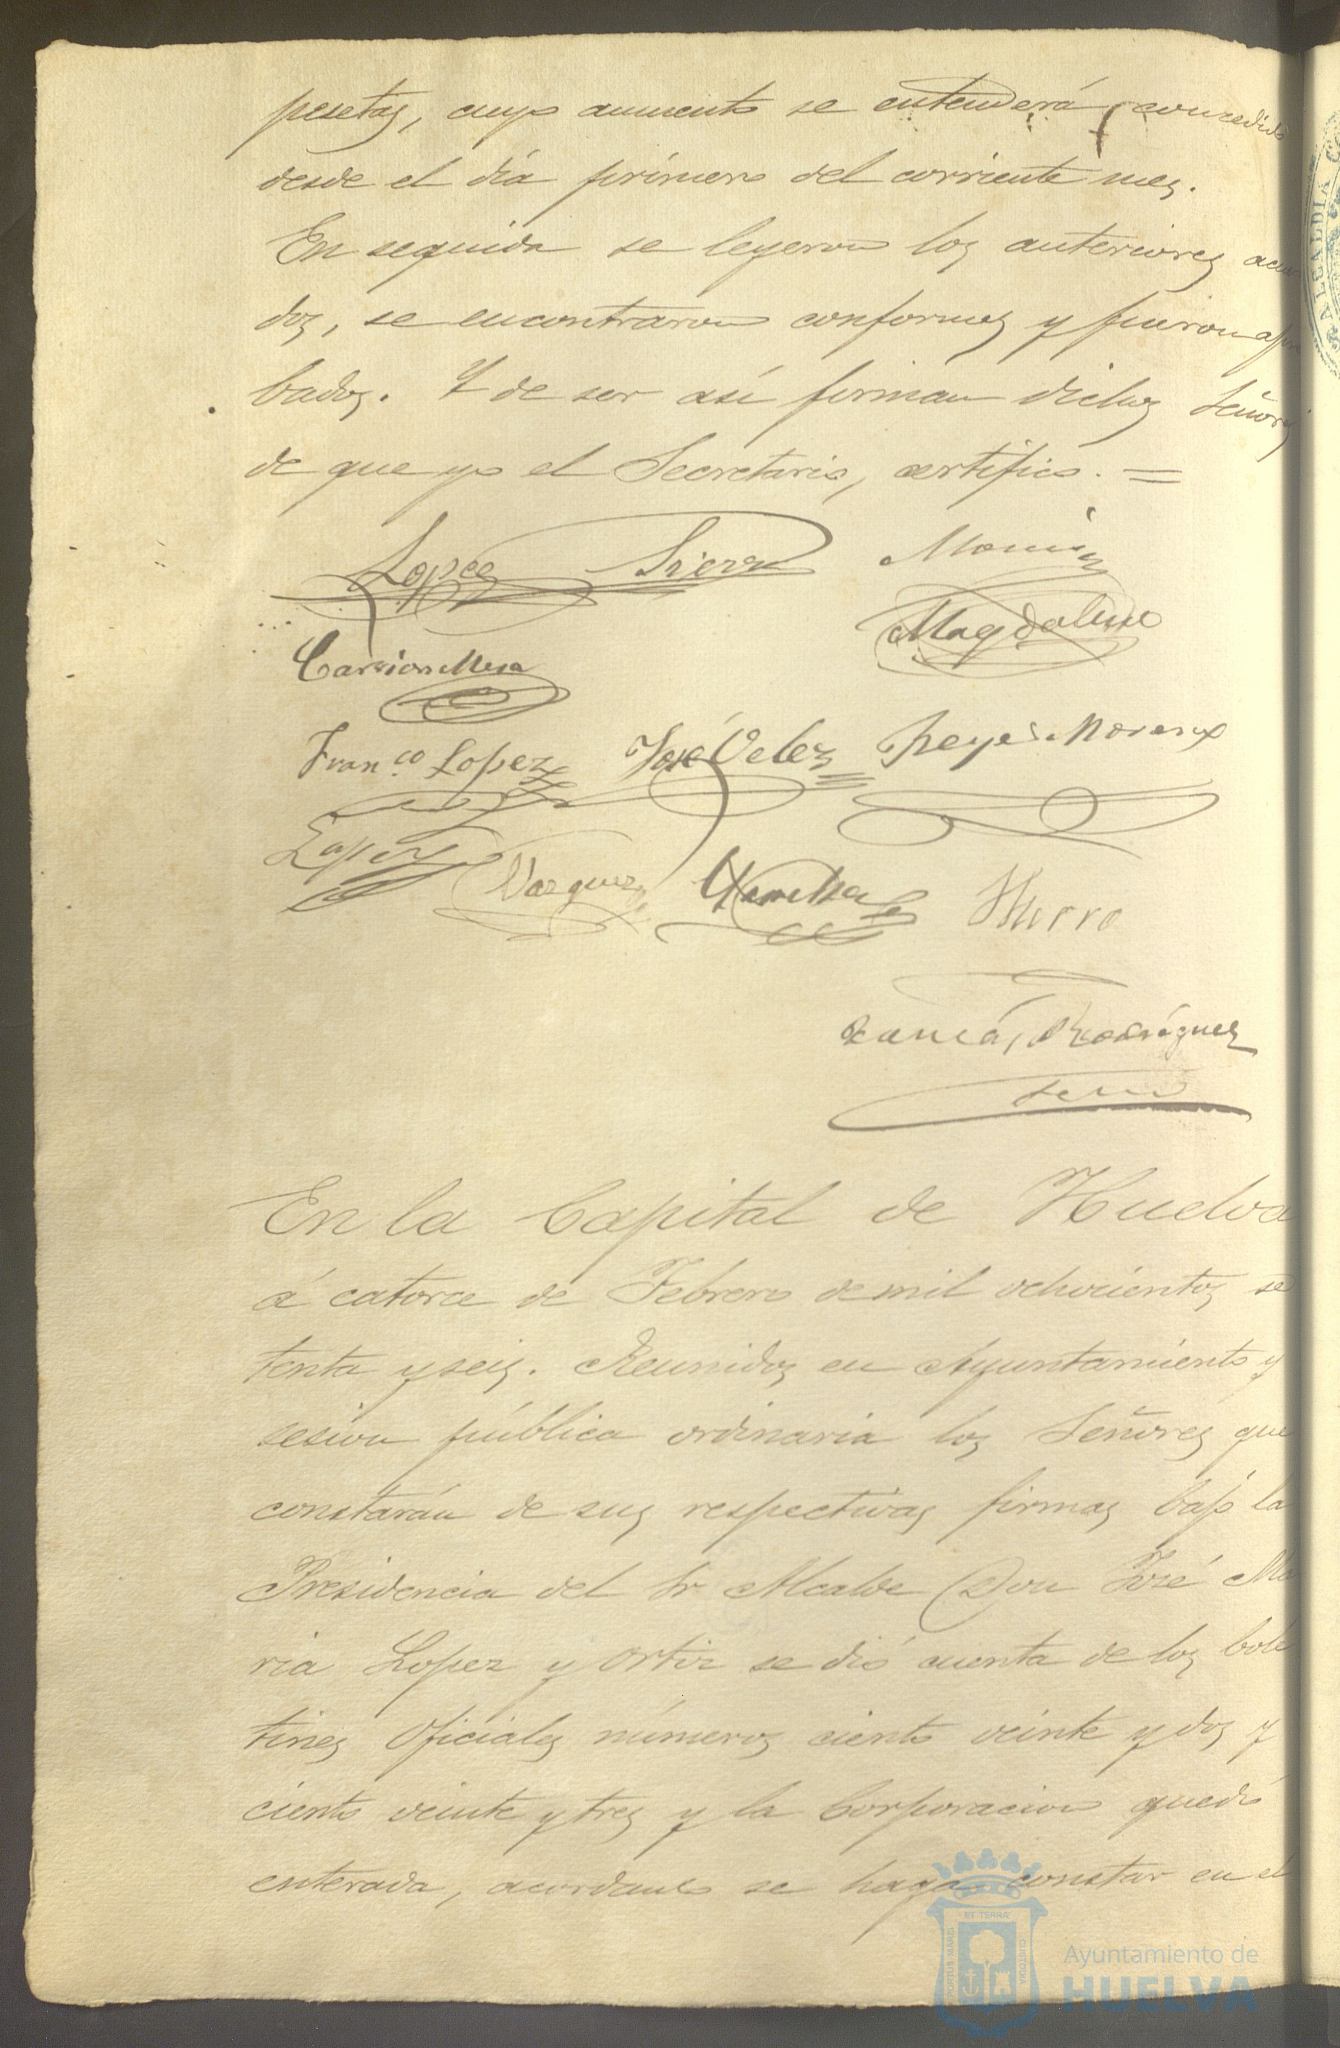 pesetas, cuyo aumento se entenderá concedido
desde el día primero del corriente mes.
En seguida se leyeron los anteriores acuer
dos, se encontraron conformes y fueron apro
bados. Y de ser así firman dichos Señores
de que yo el Secretario, certifico. =
Lopez Sierra
Magdalena
Carrion Mesa
Fran.co Lopez José Velez Reyes Moreno
Lopez Vazquez
Rodríguez
En la Capital de Huelva
á catorce de Febrero de mil ochocientos se
tenta y seis. Reunidos en Ayuntamiento y
sesion pública ordinaria los Señores que
constarán de sus respectivas firmas bajo la
Presidencia del Sr Alcalde Don José Ma
ria Lopez y Ortiz se dió cuenta de los bole
tines oficiales números ciento veinte y dos y
ciento veinte y tres y la Corporacion quedó
enterada, acordando se haga constar en el
ALCALDIA
PORTUS MARIS ET TERRÆ CUSTODIA
Ayuntamiento de
HUELVA